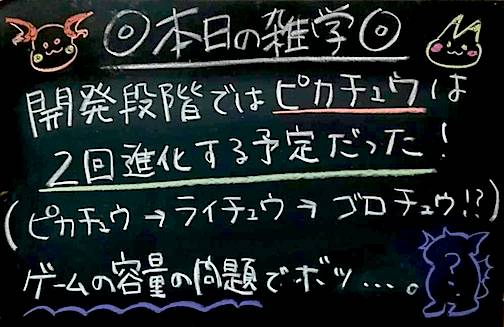 ◎本日の雑学◎
開発段階ではピカチュウは
2回進化する予定だった!
(ピカチュウ→ライチュウ→ゴロチュウ!?)
ゲームの容量の問題でボツ…。
?